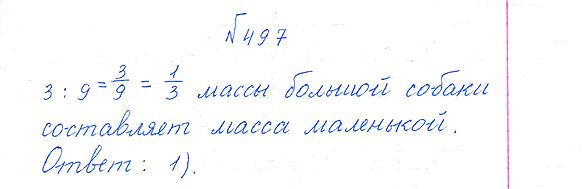 №497
3 : 9 = 3/9 = 1/3 массы большой собаки
составляет масса маленькой.
Ответ: 1).